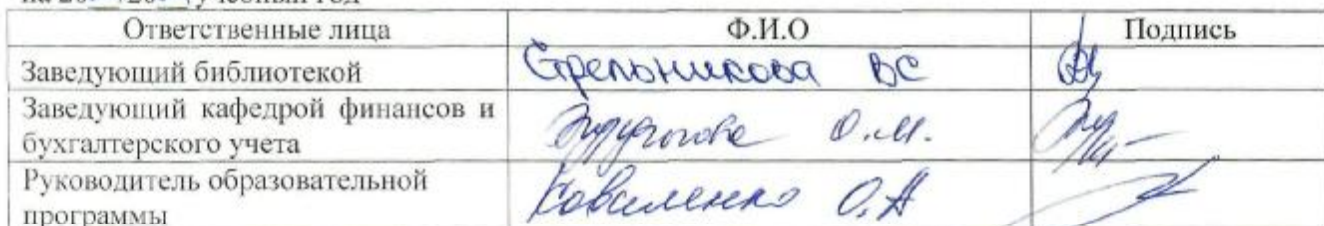 учебный год
Ответственные лица Ф.И.О Подпись
Заведующий библиотекой Стрельникова ВС
Заведующий кафедрой финансов и
бухгалтерского учета О.М.
Руководитель образовательной
программы Коваленко О.А